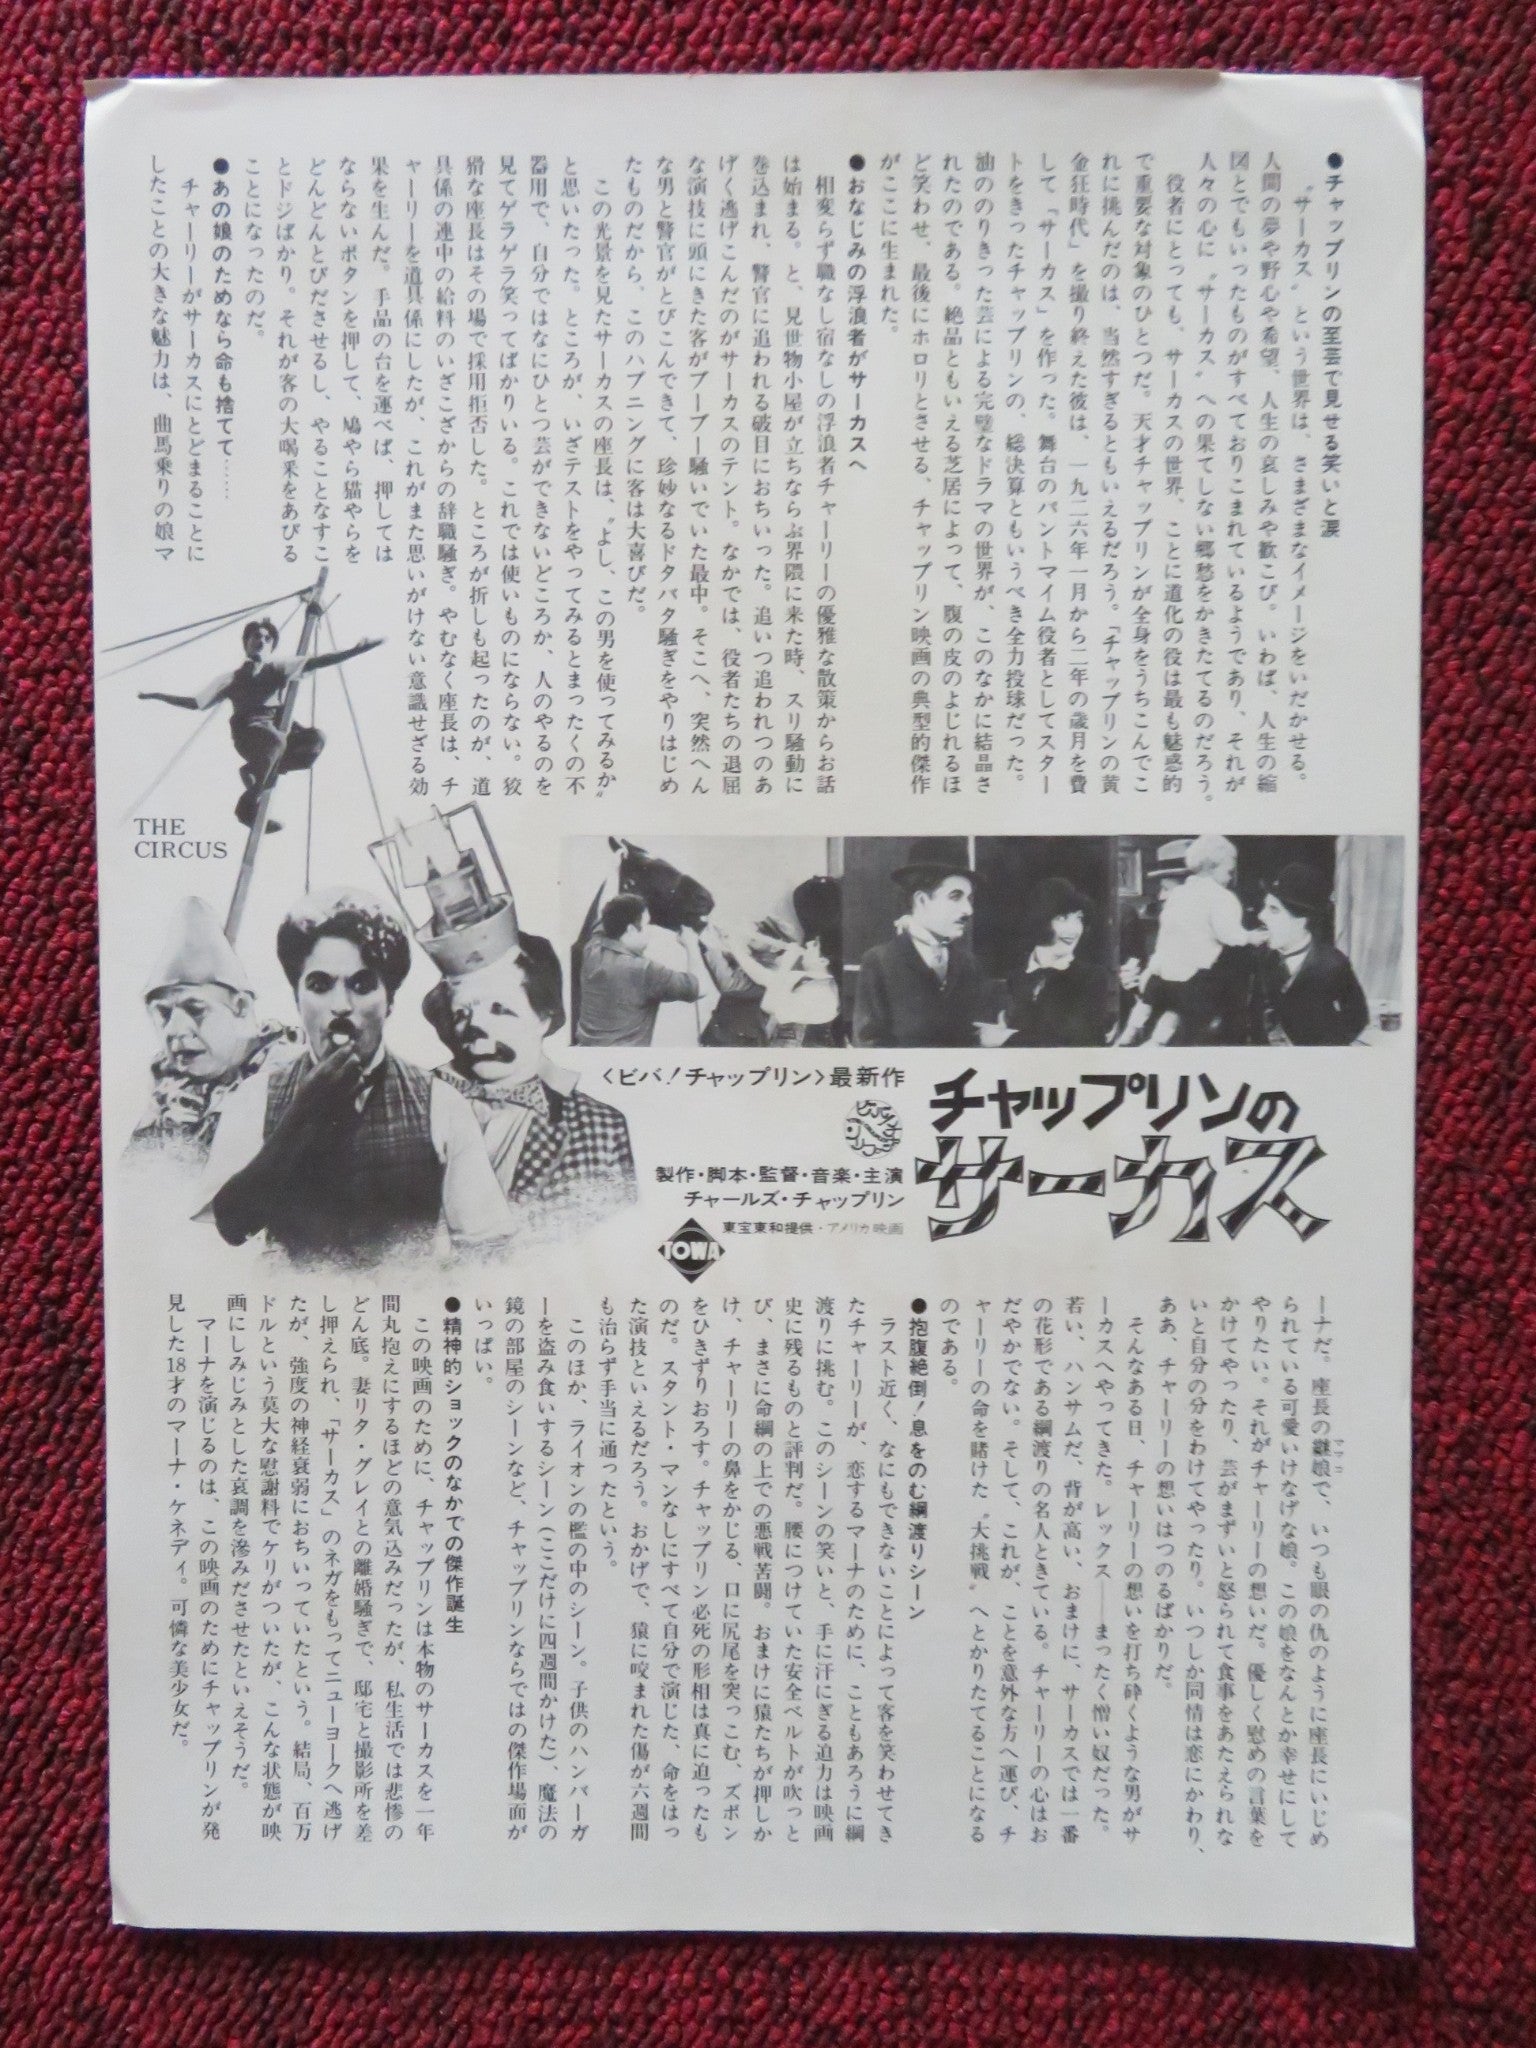 ●チャップリンの至芸で見せる笑いと涙
〝サーカス〟という世界は、さまざまなイメージをいだかせる。
人間の夢や野心や希望、人生の哀しみや歓こび。いわば、人生の縮
図とでもいったものがすべておりこまれているようであり、それが
人々の心に〝サーカス〟への果てしない郷愁をかきたてるのだろう。
役者にとっても、サーカスの世界、ことに道化の役は最も魅惑的
で重要な対象のひとつだ。天才チャップリンが全身をうちこんでこ
れに挑んだのは、当然すぎるともいえるだろう。「チャップリンの黄
金狂時代」を撮り終えた彼は、一九二六年一月から二年の歳月を費
して「サーカス」を作った。舞台のパントマイム役者としてスター
トをきったチャップリンの、総決算ともいうべき全力投球だった。
油ののりきった芸による完璧なドラマの世界が、このなかに結晶さ
れたのである。絶品ともいえる芝居によって、腹の皮のよじれるほ
ど笑わせ、最後にホロリとさせる、チャップリン映画の典型的傑作
がここに生まれた。
●おなじみの浮浪者がサーカスへ
相変らず職なし宿なしの浮浪者チャーリーの優雅な散策からお話
は始まる。と、見世物小屋が立ちならぶ界隈に来た時、スリ騒動に
巻込まれ、警官に追われる破目におちいった。追いつ追われつのあ
げく逃げこんだのがサーカスのテント。なかでは、役者たちの退屈
な演技に頭にきた客がブーブー騒いでいた最中。そこへ、突然へん
な男と警官がとびこんできて、珍妙なるドタバタ騒ぎをやりはじめ
たものだから、このハプニングに客は大喜びだ。
この光景を見たサーカスの座長は、〝よし、この男を使ってみるか〟
と思いたった。ところが、いざテストをやってみるとまったくの不
器用で、自分ではなにひとつ芸ができないどころか、人のやるのを
見てゲラゲラ笑ってばかりいる。これでは使いものにならない。狡
猾な座長はその場で採用拒否した。ところが折しも起ったのが、道
具係の連中の給料のいざこざからの辞職騒ぎ。やむなく座長は、チ
ャーリーを道具係にしたが、これがまた思いがけない意識せざる効
果を生んだ。手品の台を運べば、押しては
ならないボタンを押して、鳩やら猫やらを
どんどんとびださせるし、やることなすこ
とドジばかり。それが客の大喝采をあびる
ことになったのだ。
●あの娘のためなら命も捨てて……
チャーリーがサーカスにとどまることに
したことの大きな魅力は、曲馬乗りの娘マ
THE
CIRCUS
〈ビバ!チャップリン〉最新作
チャップリンの
サーカス
製作・脚本・監督・音楽・主演
チャールズ・チャップリン
東宝東和提供・アメリカ映画
TOWA
ーナだ。座長の継娘で、いつも眼の仇のように座長にいじめ
られている可愛いけなげな娘。この娘をなんとか幸せにして
やりたい。それがチャーリーの想いだ。優しく慰めの言葉を
かけてやったり、芸がまずいと怒られて食事をあたえられな
いと自分の分をわけてやったり。いつしか同情は恋にかわり、
ああ、チャーリーの想いはつのるばかりだ。
そんなある日、チャーリーの想いを打ち砕くような男がサ
ーカスへやってきた。レックス――まったく憎い奴だった。
若い、ハンサムだ、背が高い、おまけに、サーカスでは一番
の花形である綱渡りの名人ときている。チャーリーの心はお
だやかでない。そして、これが、ことを意外な方へ運び、チ
ャーリーの命を賭けた〝大挑戦〟へとかりたてることになる
のである。
●抱腹絶倒!息をのむ綱渡りシーン
ラスト近く、なにもできないことによって客を笑わせてき
たチャーリーが、恋するマーナのために、こともあろうに綱
渡りに挑む。このシーンの笑いと、手に汗にぎる迫力は映画
史に残るものと評判だ。腰につけていた安全ベルトが吹っと
び、まさに命綱の上での悪戦苦闘。おまけに猿たちが押しか
け、チャーリーの鼻をかじる、口に尻尾を突っこむ、ズボン
をひきずりおろす。チャップリン必死の形相は真に迫ったも
のだ。スタント・マンなしにすべて自分で演じた、命をはっ
た演技といえるだろう。おかげで、猿に咬まれた傷が六週間
も治らず手当に通ったという。
このほか、ライオンの檻の中のシーン。子供のハンバーガ
ーを盗み食いするシーン(ここだけに四週間かけた)、魔法の
鏡の部屋のシーンなど、チャップリンならではの傑作場面が
いっぱい。
●精神的ショックのなかでの傑作誕生
この映画のために、チャップリンは本物のサーカスを一年
間丸抱えにするほどの意気込みだったが、私生活では悲惨の
どん底。妻リタ・グレイとの離婚騒ぎで、邸宅と撮影所を差
し押えられ、「サーカス」のネガをもってニューヨークへ逃げ
たが、強度の神経衰弱におちいっていたという。結局、百万
ドルという莫大な慰謝料でケリがついたが、こんな状態が映
画にしみじみとした哀調を滲みださせたといえそうだ。
マーナを演じるのは、この映画のためにチャップリンが発
見した18才のマーナ・ケネディ。可憐な美少女だ。